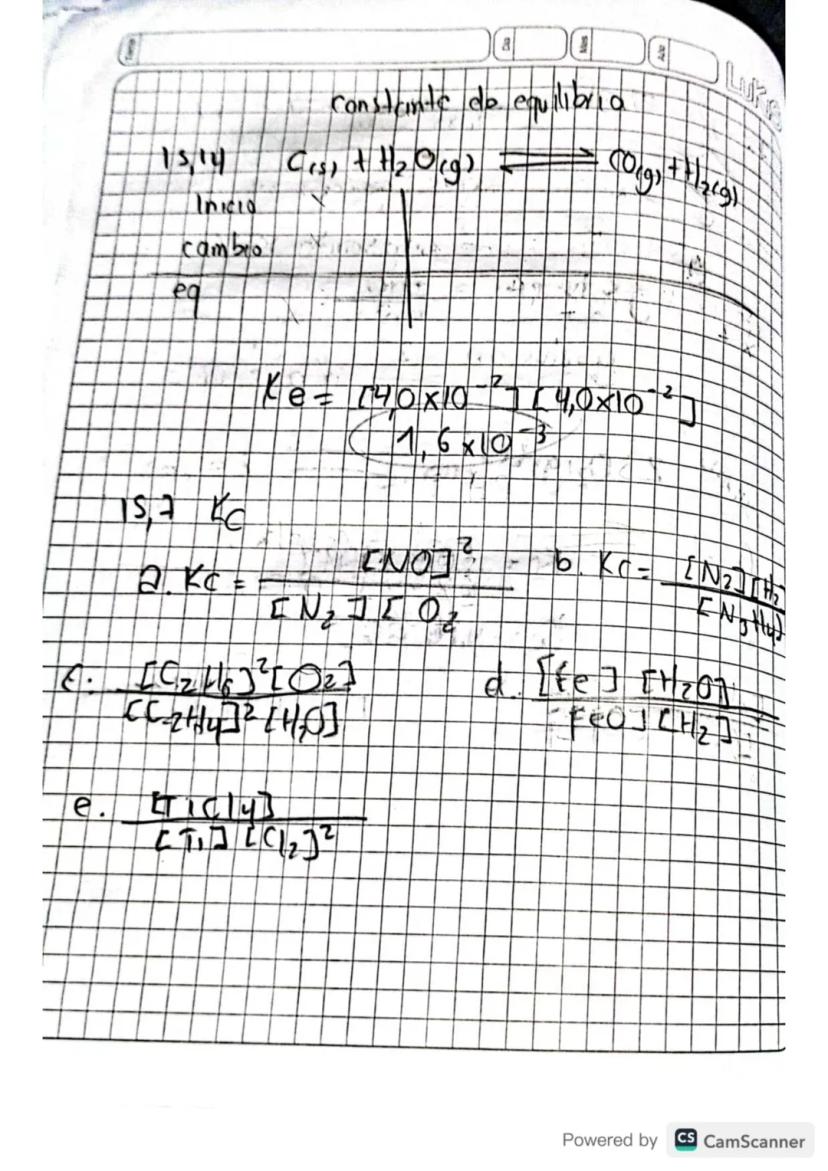 Tema Día Mes Año LUKA
constante de equilibrio
15,14 C(s) + H₂O(g) ⇌ CO(g) + H₂(g)
Inicio
cambio
eq
Ke = [4,0x10⁻²] [4,0x10⁻²]
1,6x10⁻³
15,7 Kc
a. Kc = [NO]² / [N₂] [O₂ b. Kc = [N₂] [H₂ / [N₃H4]
c. [C₂H6]² [O₂] / [C₂H4]² [H₂O] d. [Fe] [H₂O] / FeO] [H₂]
e. [TiCl4] / [Ti] [Cl₂]²
Powered by CS CamScanner